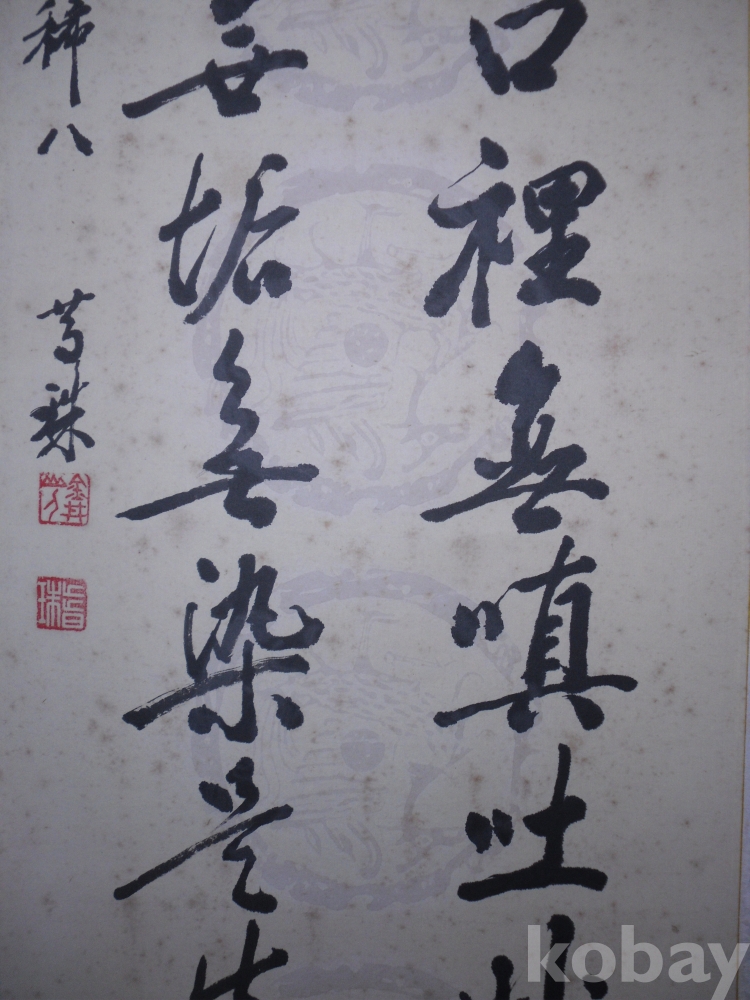 口裡無嗔吐
無垢無染是
稀八
kobay